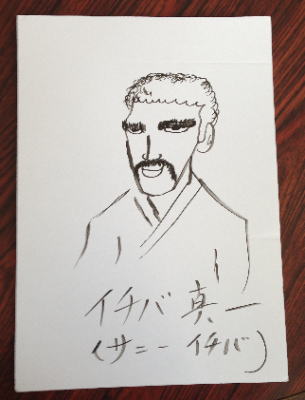 イチバ 真一
(サニー イチバ)